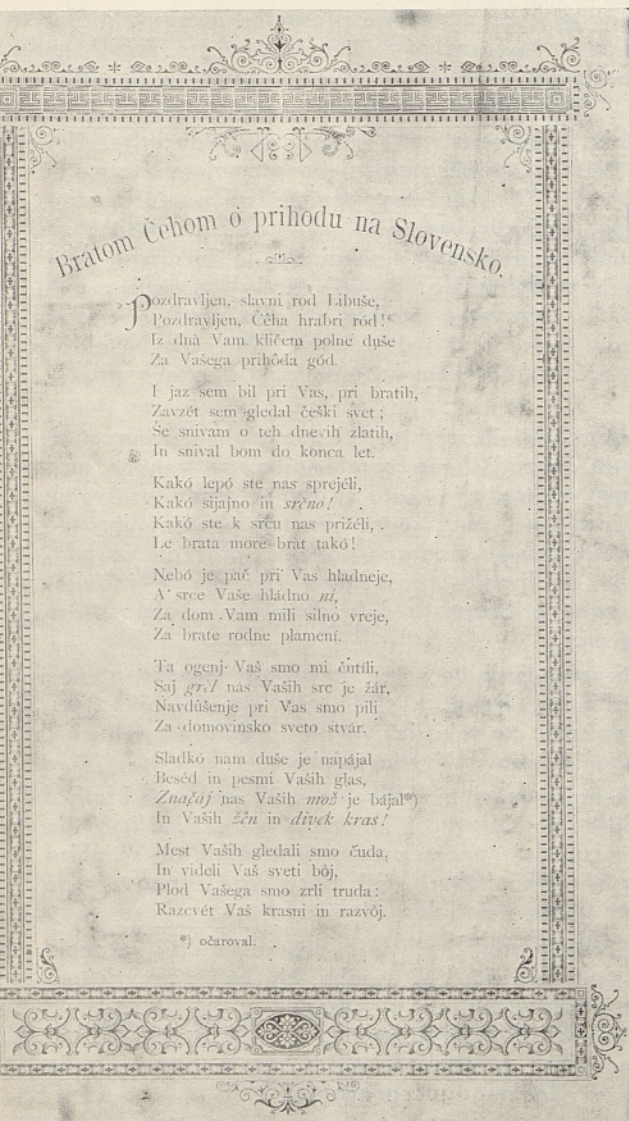 Bratom Čehom o prihodu na Slovensko.
Pozdravljen, slavni rod Libuše,
Pozdravljen, Čêha hrabri ród!«
Iz dnà Vam kličem polne duše
Za Vašega prihôda gód.
I jaz sem bil pri Vas, pri bratih,
Zavzét sem gledal češki svet;
Še snivam o teh dnevih zlatih,
In snival bom do konca let.
Kakó lepó ste nas sprejéli,
Kakó sijajno in srčno!
Kakó ste k srcu nas prižéli,
Le brata more brat takó!
Nebó je pač pri Vas hladneje,
A srce Vaše hládno ni,
Za dom Vam mili silno vreje,
Za brate rodne plamení.
Ta ogenj Vaš smo mi čutíli,
Saj grel nas Vaših src je žár,
Navdûšenje pri Vas smo pili
Za domovinsko sveto stvár.
Sladkó nam duše je napájal
Beséd in pesmi Vaših glas,
Značáj nas Vaših mož je bájal*)
In Vaših žên in dívek kras!
Mest Vaših gledali smo čuda,
In videli Vaš sveti bôj,
Plod Vašega smo zrli truda:
Razcvét Vaš krasni in razvôj.
*) očaroval.